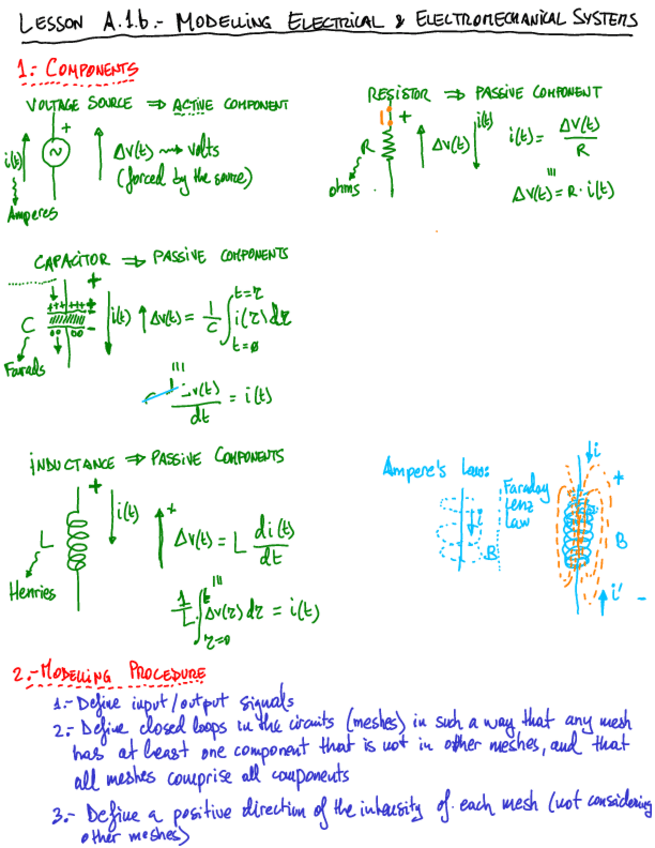 LESSON A.1.b.- MODELLING ELECTRICAL & ELECTROMECHANICAL SYSTEMS
1.- COMPONENTS
VOLTAGE SOURCE ⇒ ACTIVE COMPONENT
+
i(t)
~
Δv(t) ⟿ volts
(forced by the source)
Amperes
RESISTOR ⇒ PASSIVE COMPONENT
+
R
Δv(t)
i(t)
i(t) = Δv(t) / R
ohms
Δv(t) = R · i(t)
CAPACITOR ⇒ PASSIVE COMPONENTS
+
+++ +++ +
C
-
i(t)
Δv(t) = 1/C ∫ i(τ) dτ
t=τ
t=0
Farads
v(t) / dt = i(t)
INDUCTANCE ⇒ PASSIVE COMPONENTS
+
i(t)
+
L
Δv(t) = L di(t)/dt
Henries
1/L ∫ Δv(τ) dτ = i(t)
t
τ=0
Ampere's Law:
i
B
Faraday
Lenz
Law
i
+
B
i'
-
2.- MODELLING PROCEDURE
1.- Define input/output signals
2.- Define closed loops in the circuits (meshes) in such a way that any mesh
has at least one component that is not in other meshes, and that
all meshes comprise all components
3.- Define a positive direction of the intensity of each mesh (not considering
other meshes)